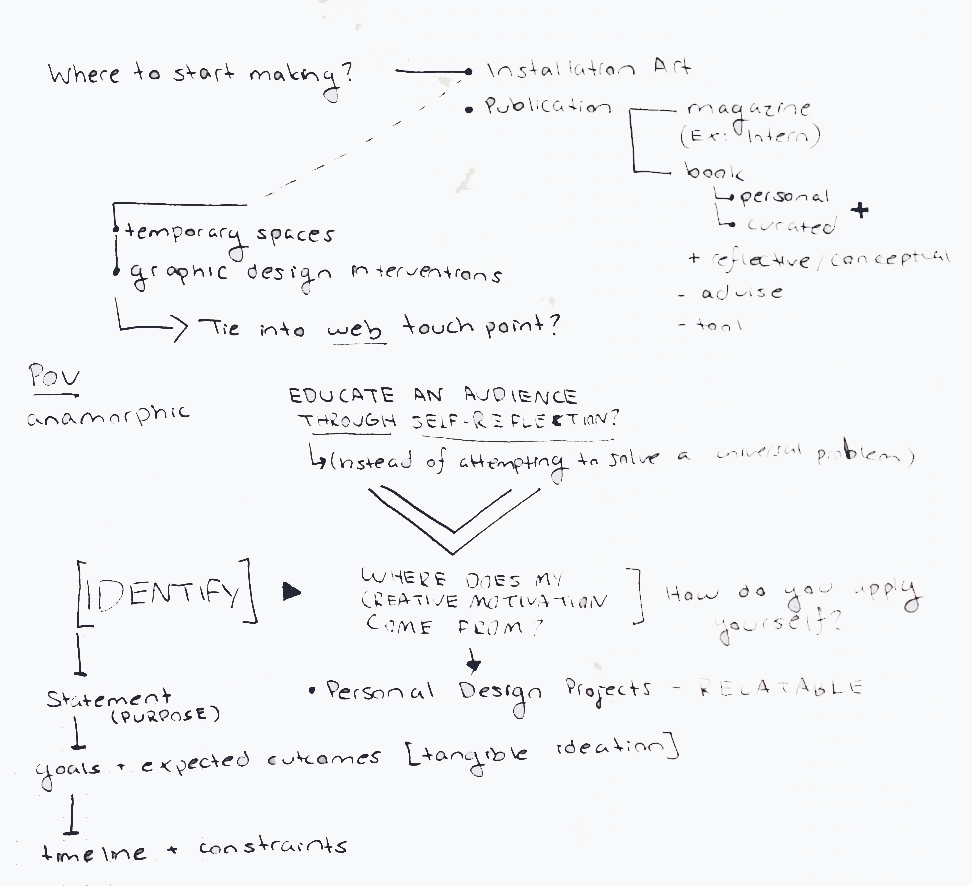 Where to start making?
• Installation Art
• Publication
magazine
(Ex: Intern)
book
personal
curated +
+ reflective/conceptual
- advise
- tool
• temporary spaces
• graphic design interventions
Tie into web touch point?
POV
anamorphic
EDUCATE AN AUDIENCE
THROUGH SELF-REFLECTION?
(instead of attempting to solve a universal problem)
[IDENTIFY]
WHERE DOES MY
CREATIVE MOTIVATION
COME FROM?
]
How do you apply
yourself?
• Personal Design Projects - RELATABLE
Statement
(PURPOSE)
goals + expected outcomes [tangible ideation]
timeline + constraints